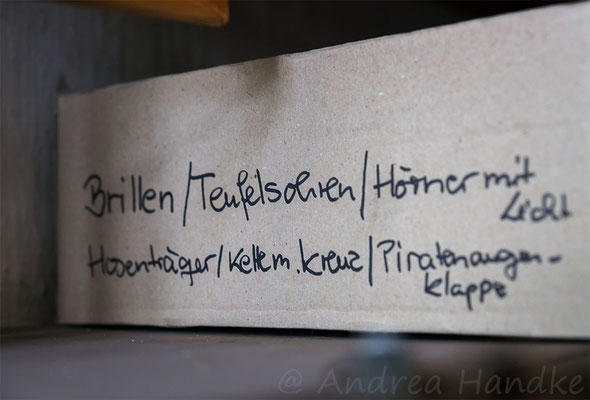 Brillen/Teufelsohren/Hörner mit
Licht
Hosenträger/Kette m. Kreuz/Piratenaugen-
klappe
@ Andrea Handke